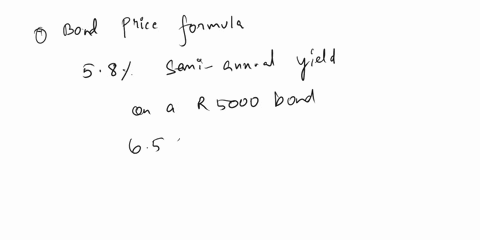 ① Bond Price formula
5.8% Semi-annual yield
on a R 5000 bond
6.5